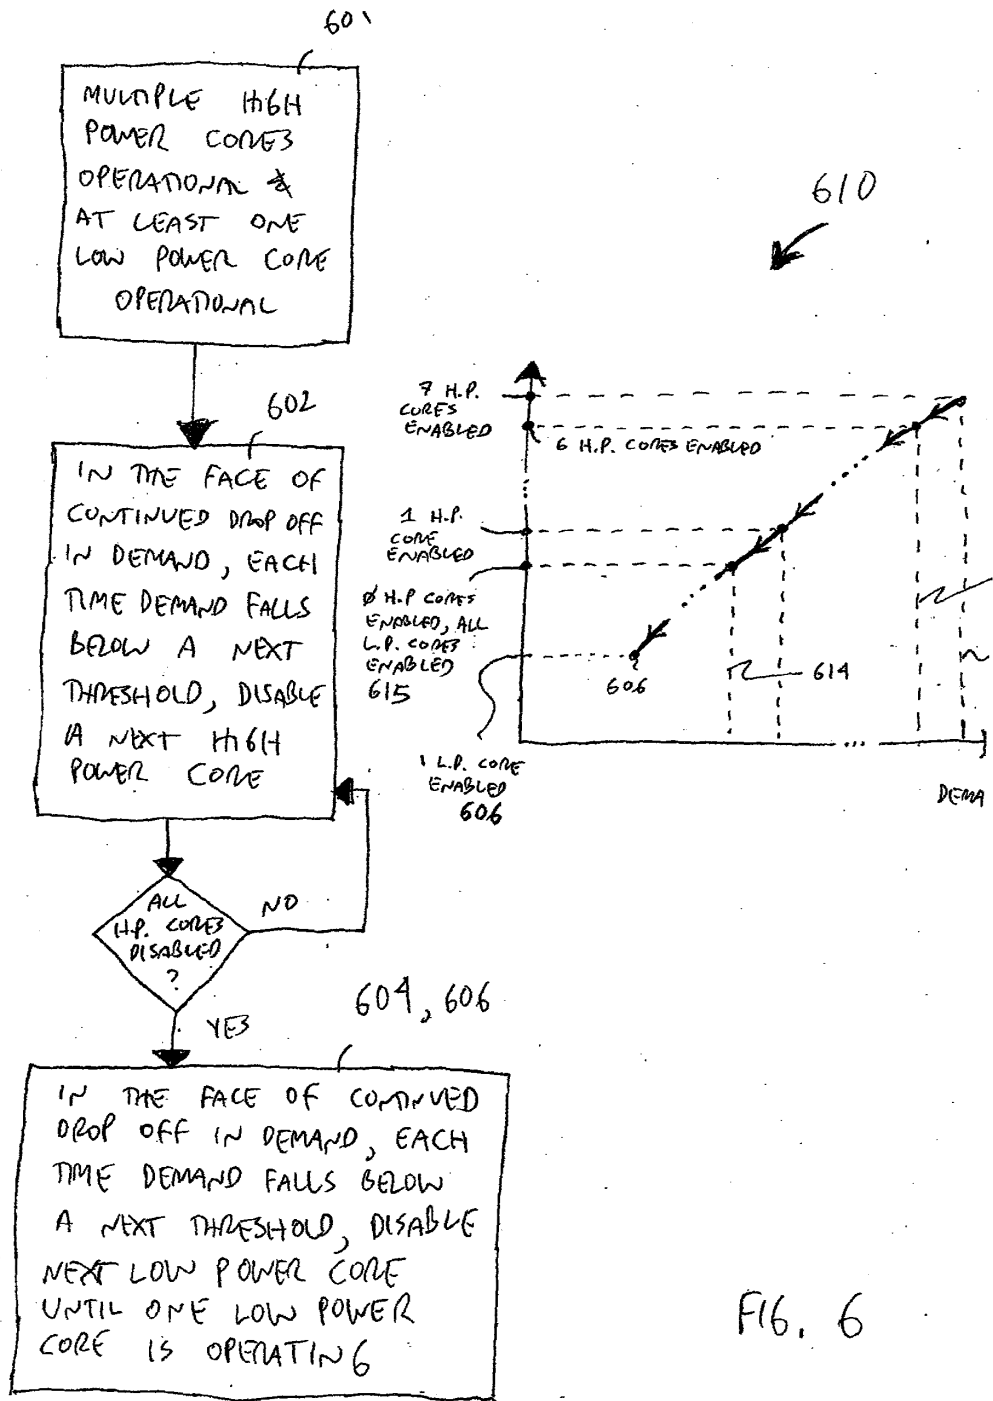 601
MULTIPLE HIGH
POWER CORES
OPERATIONAL &
AT LEAST ONE
LOW POWER CORE
OPERATIONAL
602
IN THE FACE OF
CONTINUED DROP OFF
IN DEMAND, EACH
TIME DEMAND FALLS
BELOW A NEXT
THRESHOLD, DISABLE
A NEXT HIGH
POWER CORE
ALL
H.P. CORES
DISABLED
?
NO
YES
604, 606
IN THE FACE OF CONTINUED
DROP OFF IN DEMAND, EACH
TIME DEMAND FALLS BELOW
A NEXT THRESHOLD, DISABLE
NEXT LOW POWER CORE
UNTIL ONE LOW POWER
CORE IS OPERATING
610
7 H.P.
CORES
ENABLED
6 H.P. CORES ENABLED
1 H.P.
CORE
ENABLED
Ø H.P CORES
ENABLED, ALL
L.P. CORES
ENABLED
615
606
614
1 L.P. CORE
ENABLED
606
DEMA
FIG. 6